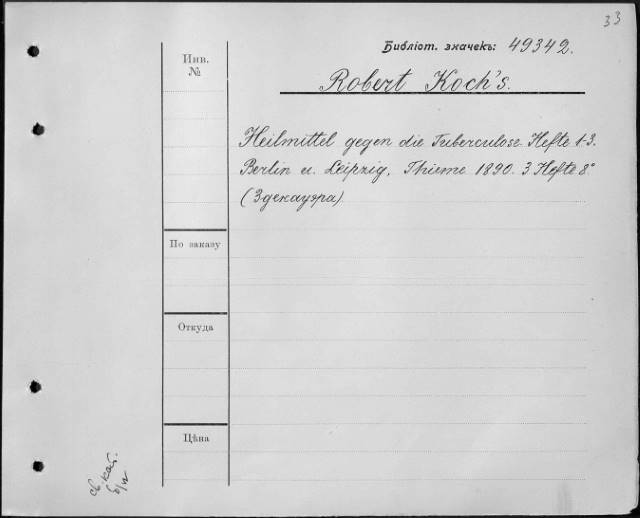 33
Библіот. значекъ: 49342.
Инв.
№
Robert Koch's.
Heilmittel gegen die Tuberculose. Hefte 1-3.
Berlin u. Leipzig, Thieme 1890. 3 Hefte 8°
(Здекауэра)
По заказу
Откуда
Цѣна
св. кат.